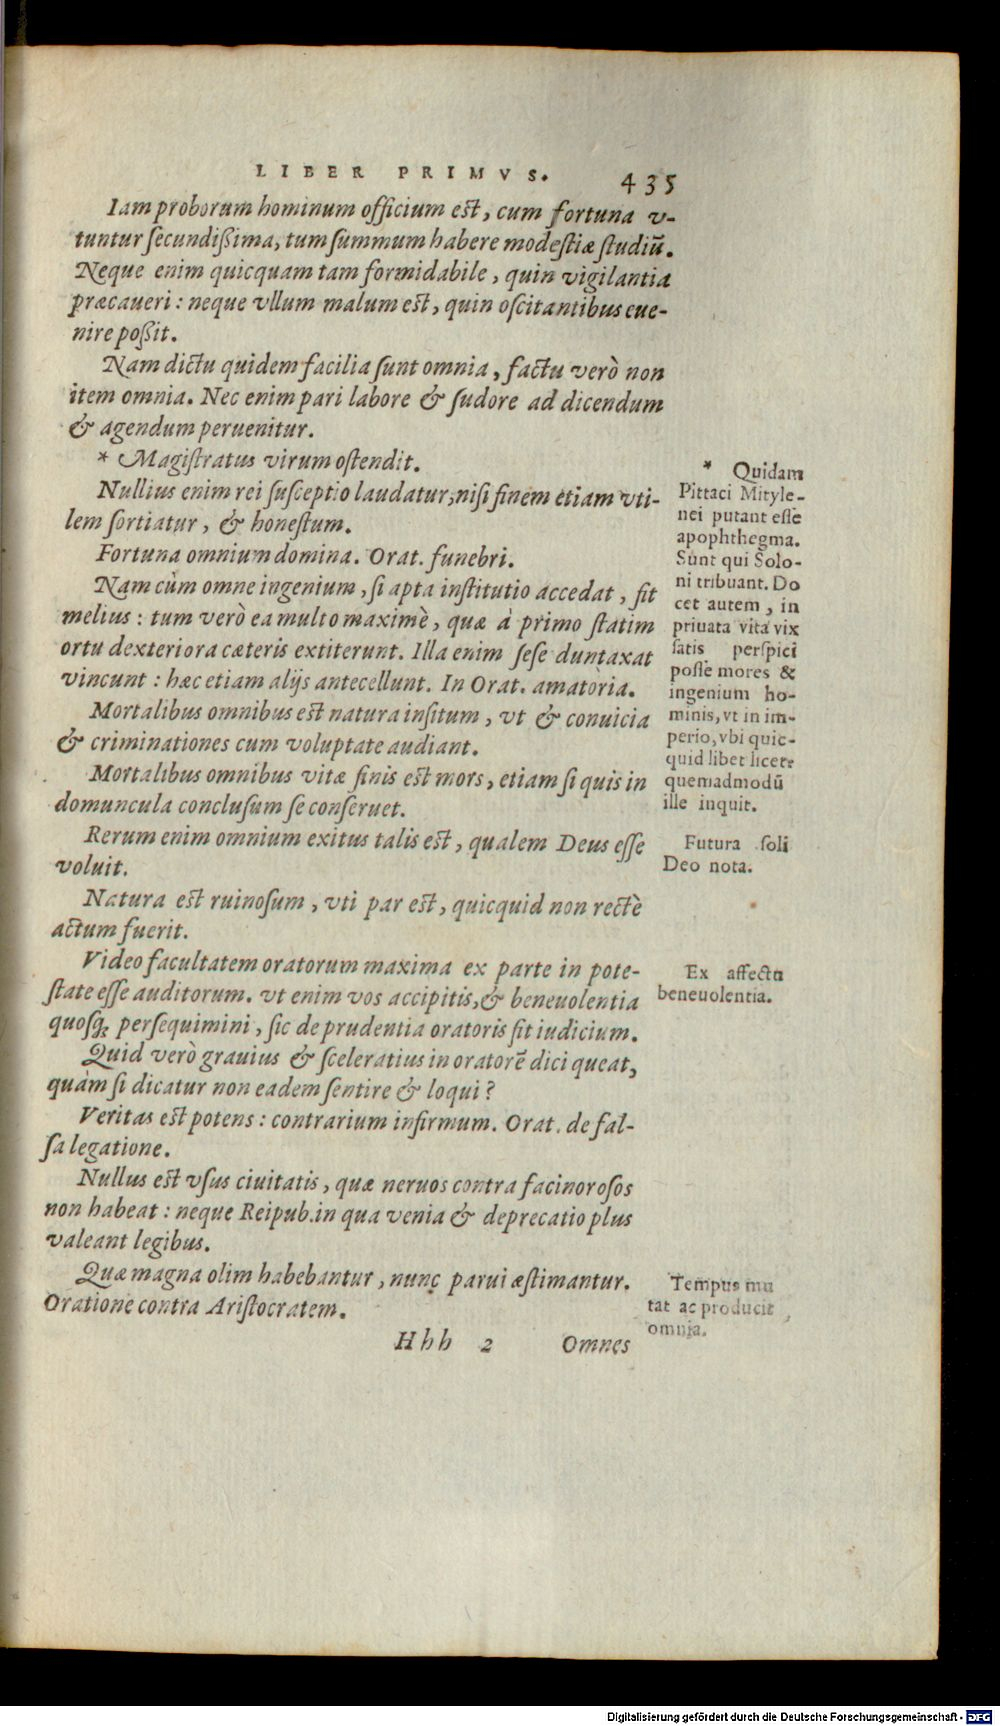 LIBER PRIMVS. 435
Iam proborum hominum officium est, cum fortuna v-
tuntur secundißima, tum summum habere modestiæ studiũ.
Neque enim quicquam tam formidabile, quin vigilantia
præcaueri: neque vllum malum est, quin oscitantibus eue-
nire poßit.
Nam dictu quidem facilia sunt omnia, factu verò non
item omnia. Nec enim pari labore & sudore ad dicendum
& agendum peruenitur.
* Magistratus virum ostendit.
Nullius enim rei susceptio laudatur, nisi finem etiam vti-
lem sortiatur, & honestum.
Fortuna omnium domina. Orat. funebri.
Nam cùm omne ingenium, si apta institutio accedat, fit
melius: tum verò ea multo maximè, quæ à primo statim
ortu dexteriora cæteris extiterunt. Illa enim sese duntaxat
vincunt: hæc etiam alijs antecellunt. In Orat. amatoria.
Mortalibus omnibus est natura insitum, vt & conuicia
& criminationes cum voluptate audiant.
Mortalibus omnibus vitæ finis est mors, etiam si quis in
domuncula conclusum se conseruet.
Rerum enim omnium exitus talis est, qualem Deus esse
voluit.
Natura est ruinosum, vti par est, quicquid non rectè
actum fuerit.
Video facultatem oratorum maxima ex parte in pote-
state esse auditorum. vt enim vos accipitis, & beneuolentia
quosq; persequimini, sic de prudentia oratoris fit iudicium.
Quid verò grauius & sceleratius in oratorẽ dici queat,
quàm si dicatur non eadem sentire & loqui?
Veritas est potens: contrarium infirmum. Orat. de fal-
sa legatione.
Nullus est vsus ciuitatis, quæ neruos contra facinorosos
non habeat: neque Reipub. in qua venia & deprecatio plus
valeant legibus.
Quæ magna olim habebantur, nunc parui æstimantur.
Oratione contra Aristocratem.
Hhh 2 Omnes
* Quidam
Pittaci Mityle-
nei putant esse
apophthegma.
Sunt qui Solo-
ni tribuant. Do
cet autem, in
priuata vita vix
satis perspici
posse mores &
ingenium ho-
minis, vt in im-
perio, vbi quic-
quid libet licere
quemadmodũ
ille inquit.
Futura soli
Deo nota.
Ex affectu
beneuolentia.
Tempus mu
tat ac producit
omnia.
Digitalisierung gefördert durch die Deutsche Forschungsgemeinschaft - DFG